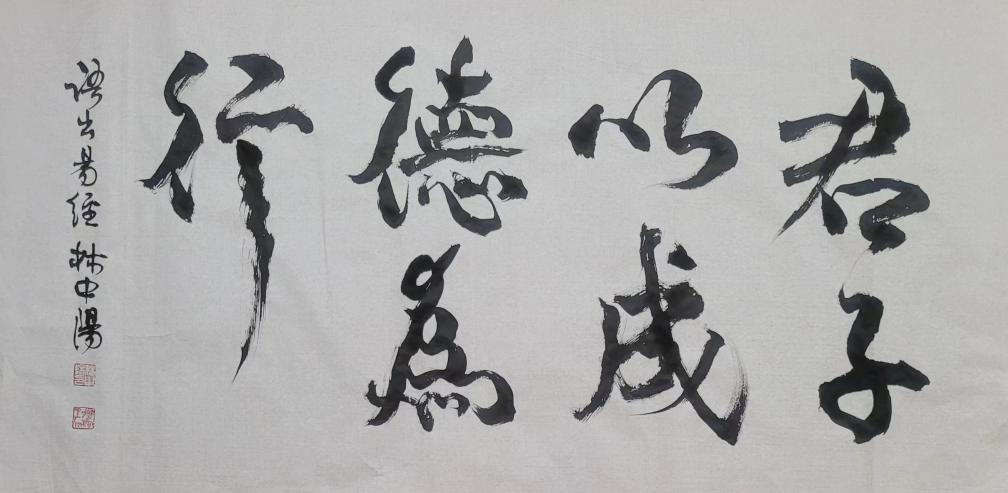 君子
以成
德為
行
語出易經 林中陽